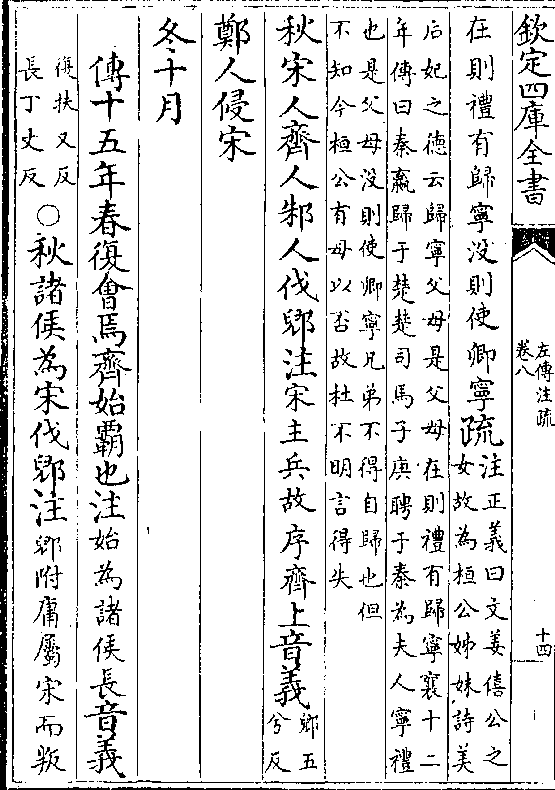 欽定四庫全書
左傳注疏
卷八
十四
在則禮有歸寧没則使卿寧疏注正義曰文姜僖公之
女故為桓公姊妹詩美
后妃之德云歸寧父母是父母在則禮有歸寧襄十二
年傳曰秦嬴歸于楚楚司馬子庚聘于秦為夫人寧禮
也是父母没則使卿寧兄弟不得自歸也但
不知今桓公有母以否故杜不明言得失
秋宋人齊人邾人伐郳注宋主兵故序齊上音義郳五
兮反
鄭人侵宋
冬十月
傳十五年春復會焉齊始霸也注始為諸侯長音義
復扶又反
長丁丈反
○秋諸侯為宋伐郳注郳附庸屬宋而叛